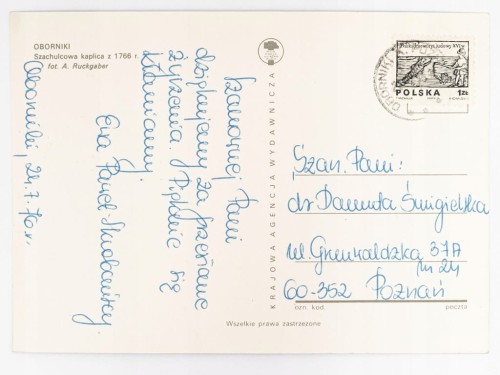 OBORNIKI
Szachulcowa kaplica z 1766 r.
fot. A. Ruckgaber
Szanownej Pani
dziękujemy za przesłane
życzenia. Pięknie się
kłaniamy.
Ewa Paweł
Oborniki, 24.7.78r.
KRAJOWA AGENCJA WYDAWNICZA
POLSKA
1ZŁ
OBORNIKI
Szan. Pani:
dr Danuta Śmigielska
ul. Grunwaldzka 37A
m 24
60-352 Poznań
ozn. kod
poczta
Wszelkie prawa zastrzeżone